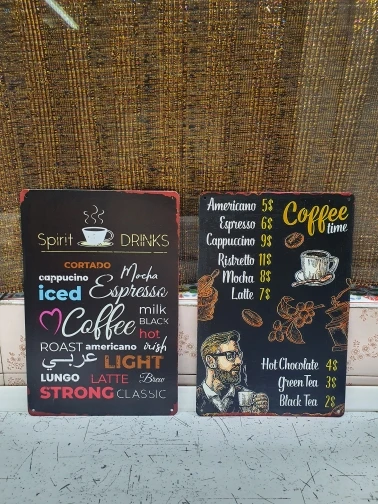 Spirit DRINKS
CORTADO
cappucino Mocha
iced Espresso
milk
Coffee BLACK
hot
ROAST americano irish
عربي LIGHT
LUNGO LATTE Brew
STRONG CLASSIC
Americano 5$
Espresso 6$
Cappuccino 9$
Ristretto 11$
Mocha 8$
Latte 7$
Coffee
time
Hot Chocolate 4$
Green Tea 3$
Black Tea 2$